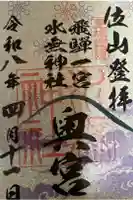 位山登拝
飛騨一宮
水無神社
奥宮
令和八年四月十一日